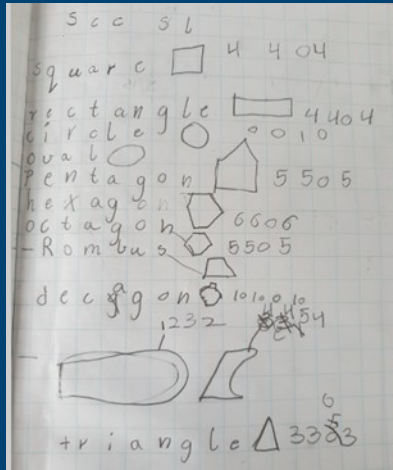 s c c s l
square 4 4 04
rectangle 4 4 0 4
circle 0 0 1 0
oval
pentagon 5 5 0 5
hexagon
octagon 6606
-Rombus 5505
decagon 10 10 0 10
1232
54
triangle 33